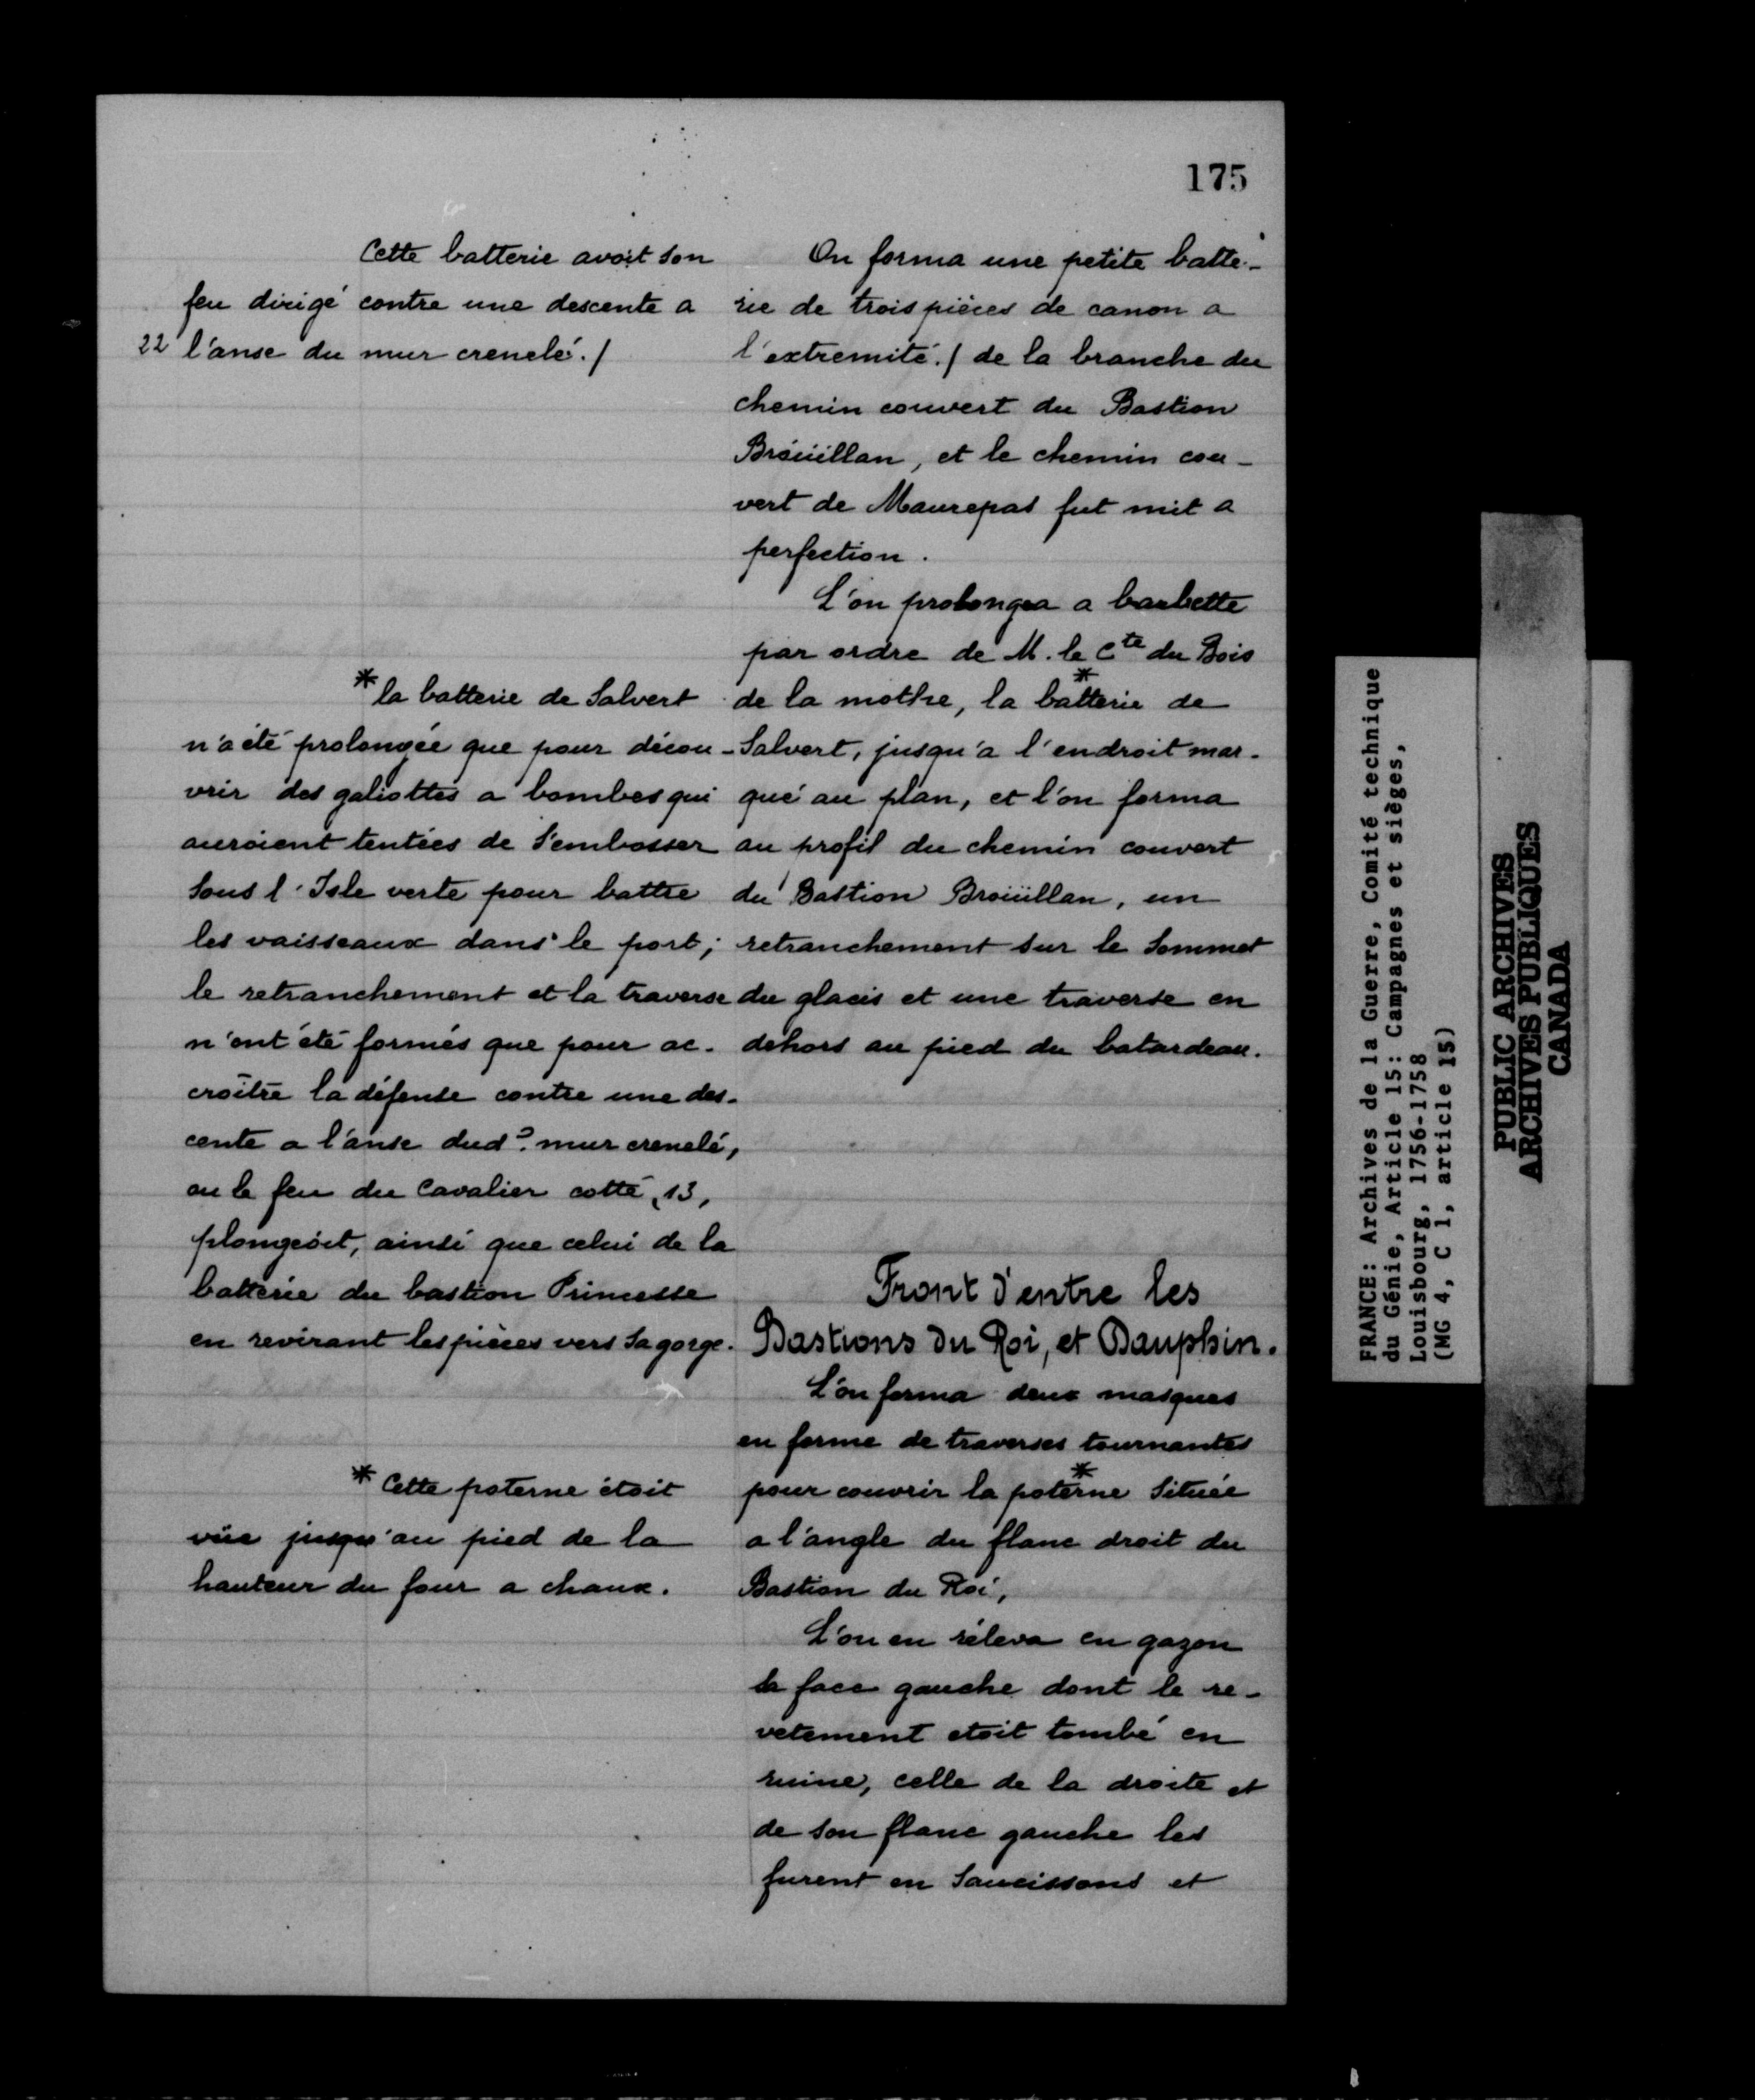 175
Cette batterie avoit son
feu dirigé contre une descente a
22 l'anse du mur crenelé./
*la batterie de Salvert
n'a été prolongée que pour décou-
vrir des galiottes a bombes qui
auroient tentées de s'embosser
sous l'Isle verte pour battre
les vaisseaux dans le port;
le retranchement et la traverse
n'ont été formés que pour ac-
croître la défense contre une des-
cente a l'anse dud? mur crenelé,
ou le feu du Cavalier cotté, 13,
plongeoit, ainsi que celui de la
batterie du bastion Princesse
en revirant les pièces vers sa gorge.
*Cette poterne étoit
vüe jusqu'au pied de la
hauteur du four a chaux.
On forma une petite batte-
rie de trois pièces de canon a
l'extremité./ de la branche du
chemin couvert du Bastion
Broüillan, et le chemin cou-
vert de Maurepas fut mit a
perfection.
L'on prolongea a barbette
par ordre de M. le Cte du Bois
de la mothe, la batterie* de
Salvert, jusqu'a l'endroit mar-
qué au plan, et l'on forma
au profil du chemin couvert
du Bastion Broüillan, un
retranchement sur le sommet
du glacis et une traverse en
dehors au pied du batardeau.
Front d'entre les
Bastions du Roi, et Dauphin.
L'on forma deux masques
en forme de traverses tournantes
pour couvrir la poterne* située
a l'angle du flanc droit du
Bastion du Roi,
L'on en réleva en gazon
la face gauche dont le re-
vetement etoit tombé en
ruine, celle de la droite et
de son flanc gauche les
furent en saucissons et
FRANCE: Archives de la Guerre, Comité technique
du Génie, Article 15: Campagnes et sièges,
Louisbourg, 1756-1758
(MG 4, C 1, article 15)
PUBLIC ARCHIVES
ARCHIVES PUBLIQUES
CANADA